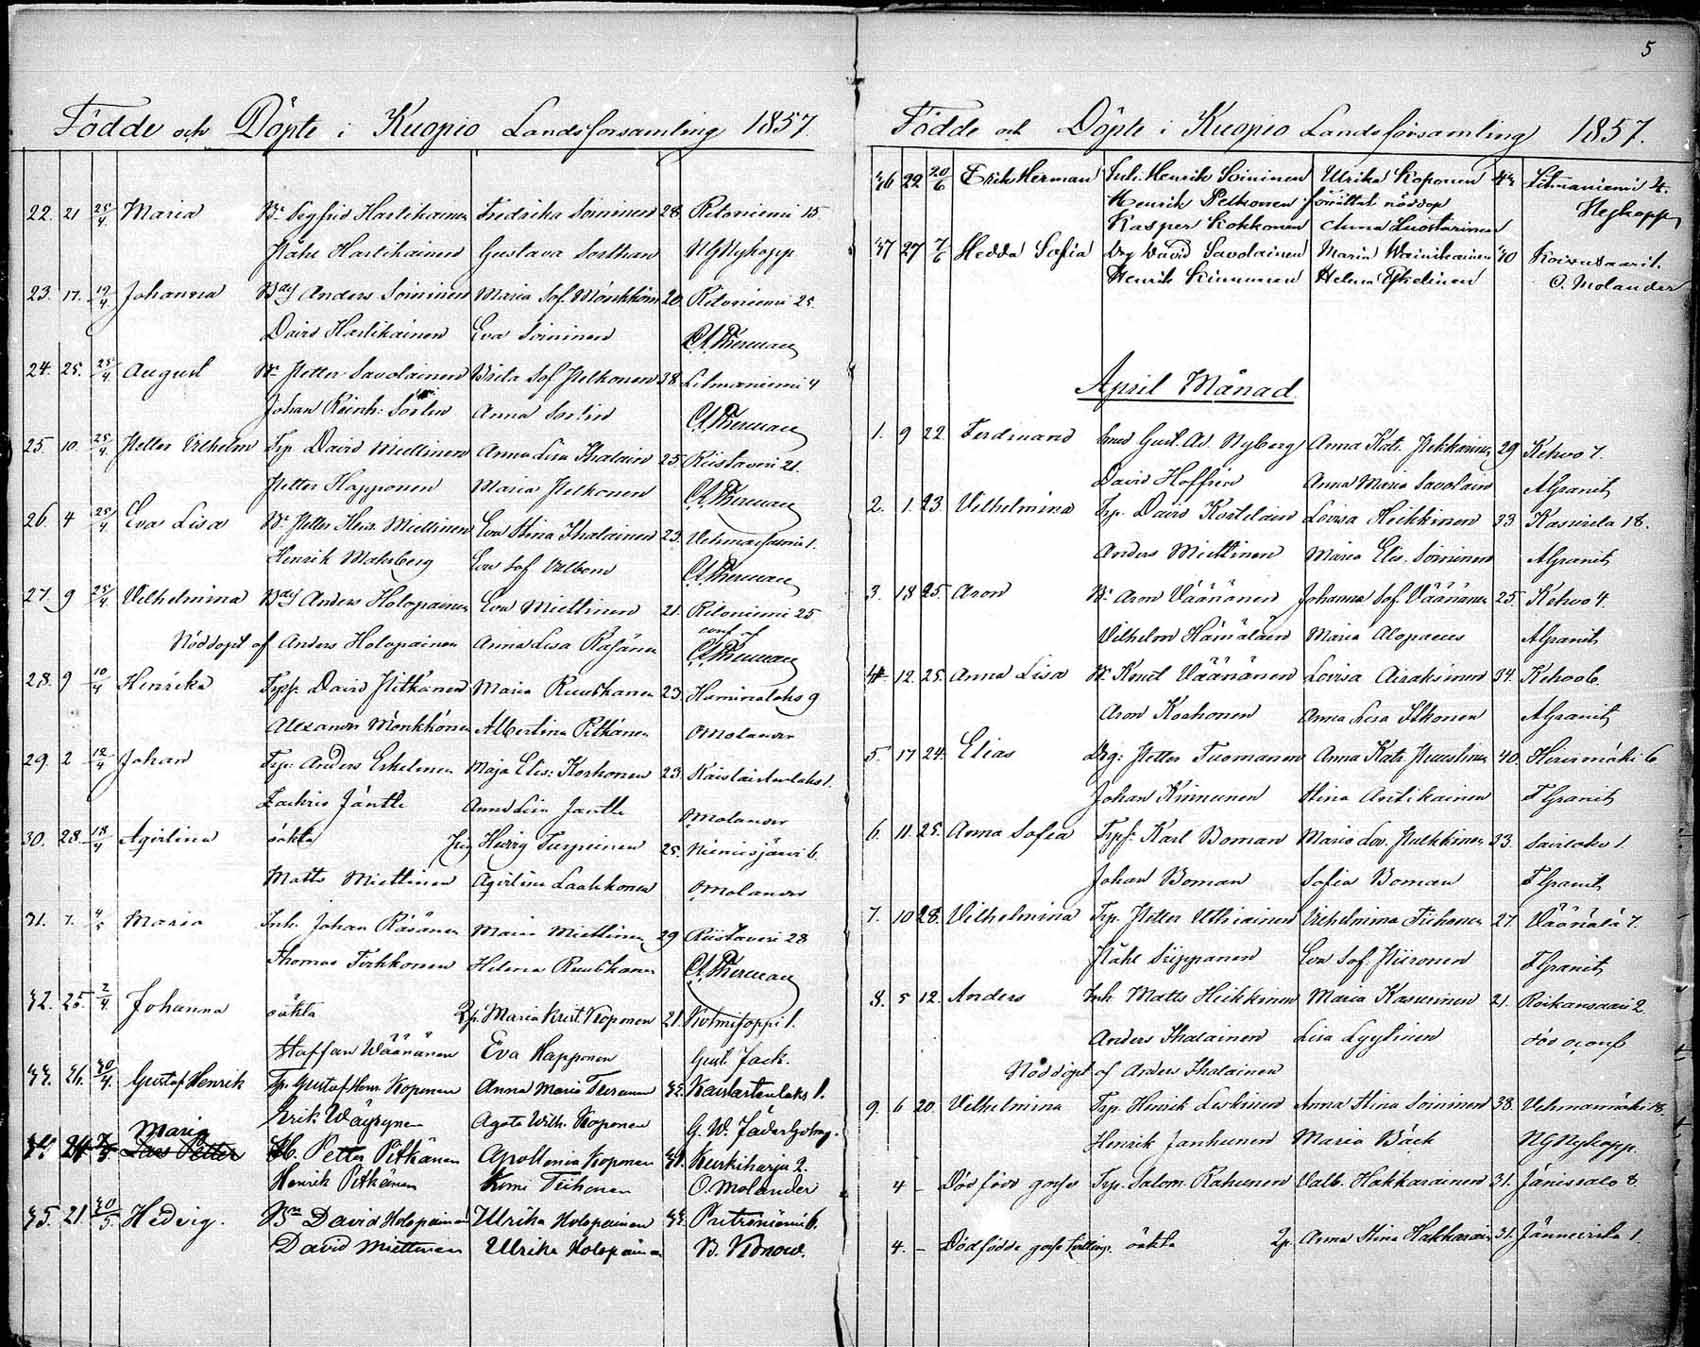 5
Födde och Döpte i Kuopio Landsförsamling 1857.
22. 21 25/4 Maria Bd Sigfrid Hartikainen Fredrika Soininen 28 Ritoniemi 15
Påhl Hartikainen Gustava Sorthan NGNykopp
23. 17. 19/4 Johanna Bdr Anders Soininen Maria Sof. Mönkkönen 20. Ritoniemi 25
David Hartikainen Eva Soininen
24. 25. 25/4 August Bd Petter Savolainen Brita Sof Pelkonen 38 Litmaniemi 4
Johan Reinh. Sorlin Anna Sorlin
25. 10. 25/4 Petter Vilhelm Trp David Miettinen Anna Lisa Ihalainen 25 Riistavesi 21.
Petter Happonen Maria Pelkonen
26. 4 25/4 Eva Lisa Bd Petter Henr. Miettinen Eva Stina Ihalainen 23.
Henrik Malmberg Eva Sof
27. 9 25/4 Vilhelmina Bdr Anders Holopainen Eva Miettinen 21. Ritoniemi 25
Nöddöpt af Anders Holopainen Anna Lisa Räsänen conf. af
28. 9 10/4 Henrika Trpp. David Pitkänen Maria Ruuskanen 23. Haminalaks 9
Alexander Mönkkönen Albertina Pitkänen OMolander
29. 2 12/4 Johan Trp. Anders Eskelinen Maja Elis: Korhonen 23.
Zachris Jäntti Anna Lisa Jäntti OMolander
30. 28. 18/4 Agirlina oäkta Hedvig Turpeinen 25. Niemisjärvi 6.
Matts Miettinen Agirlina Laakkonen OMolander
31. 7. 4/5 Maria Inh. Johan Räsänen Maria Miettinen 29 Riistavesi 28
Thomas Tirkkonen Helena Ruuskanen
32. 25. 2/4 Johanna oäkta Maria Krist. Koponen 21. Kolmisoppi 1.
Staffan Wäänänen Eva Happonen Gust. Jack.
33. 26. 30/4 Gustaf Henrik Trp. Gustaf Henr. Koponen Anna Maria 32.
Erik Wäyrynen Agata Wilh. Koponen G. W.
Maria
Lars Petter Petter Pitkänen Apollonia Koponen Kurkiharju 2.
Henrik Pitkänen Tiihonen O. Molander
35. 21 30/5 Hedvig. Bdn David Holopainen Ulrika Holopainen 33. 6.
David Miettinen Ulrika Holopainen B.
Födde och Döpte i Kuopio Landsförsamling 1857.
36 22 20/6 Erik Herman Inh. Henrik Soininen Ulrika Koponen 43 Litmaniemi 4.
Henrik Pelkonen förrättat nöddop Nykopp
Kasper Kokkonen Anna Luostarinen
37 27 7/6 Hedda Sofia Drg David Savolainen Maria Wainikainen 40
Henrik Kinnunen Helena Eskelinen O. Molander
April Månad.
1. 9 22. Ferdinand Gust. Ad. Nyberg Anna Kat. Pekkarinen 29 Kehvo 7.
David Hoffrén Anna Maria Savolainen AGranit
2. 1. 23. Vilhelmina Trp. David Lovisa Heikkinen 33 Kasurila 18.
Anders Miettinen Maria Elis. Soininen AGranit
3. 18 25. Aron Bd. Aron Väänänen Johanna Sof. Väänänen 25. Kehvo 4.
Vilhelm Hämäläin Maria Alopaeus AGranit
4. 12. 25. Anna Lisa Bd. Knut Väänänen Lovisa Airaksinen 34. Kehvo 6.
Aron Korhonen Anna Lisa Itkonen AGranit
5. 17 24. Elias Drg. Petter Tuomainen Anna Kat. 40. Hirvimäki 6
Johan Kinnunen Stina Antikainen FGranit
6. 11. 25. Anna Sofia Trpf. Karl Boman Maria Lov. Pulkkinen 33. Savilaks 1.
Johan Boman Sofia Boman FGranit
7. 10 28. Vilhelmina Trp. Petter Uthriainen Vilhelmina Tiihonen 27. Väänälä 7.
Påhl Seppänen Eva Sof. Piironen FGranit
8. 5 12. Anders Inh. Matts Heikkinen Maria Kasurinen 21. Roikansaari 2.
Anders Ihalainen Lisa Lyytinen
Nöddöpt af Anders Ihalainen
9. 6 20. Vilhelmina Trp. Henrik Leskinen Anna Stina Soininen 38. Vehmasmäki 18.
Henrik Janhunen Maria Bäck NGNykopp.
4 - Dödfödd gosse Trp. Salom. Rahunen Valb. Hakkarainen 31. Jänissalo 8.
4. - Dödfödde gosse tvilling. oäkta Anna Stina Hakkarain 31. Jännevirta 1.